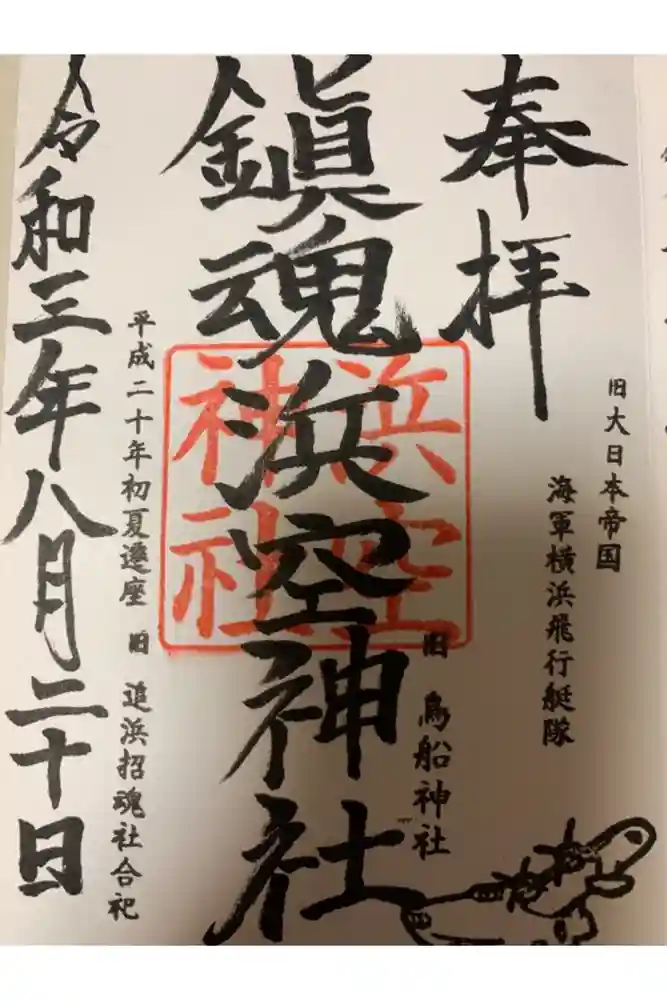 奉拝
旧大日本帝国
海軍横浜飛行艇隊
旧 鳥船神社
鎮魂浜空神社
浜空
神社
平成二十年初夏遷座 旧 追浜招魂社合祀
令和三年八月二十日